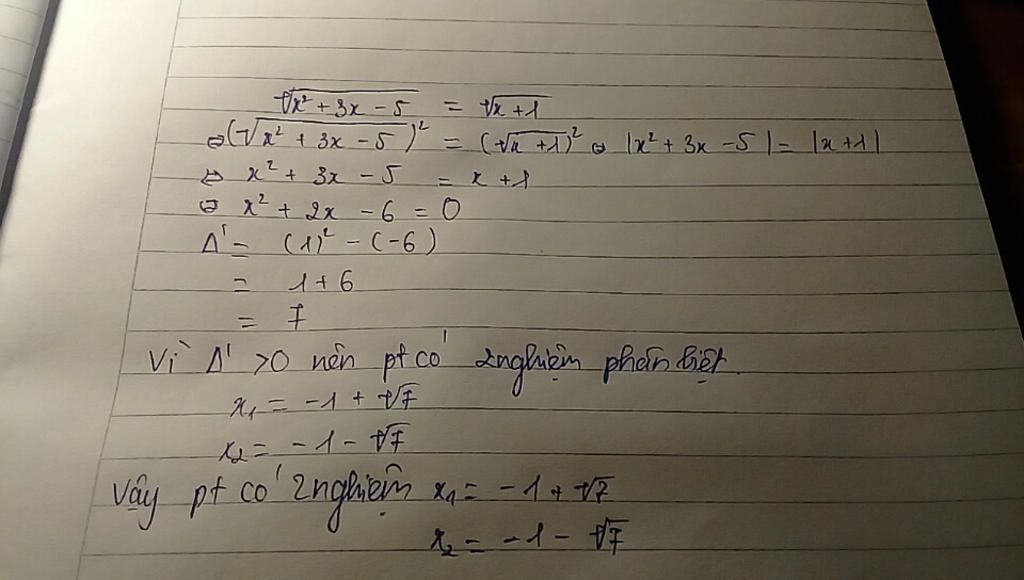 √x² + 3x - 5 = √x + 1
⇔ (√x² + 3x - 5)² = (√x + 1)² ⇔ |x² + 3x - 5| = |x + 1|
⇔ x² + 3x - 5 = x + 1
⇔ x² + 2x - 6 = 0
Δ' = (1)² - (-6)
= 1 + 6
= 7
Vì Δ' > 0 nên pt có 2 nghiệm phân biệt.
x₁ = -1 + √7
x₂ = -1 - √7
Vậy pt có 2 nghiệm x₁ = -1 + √7
x₂ = -1 - √7